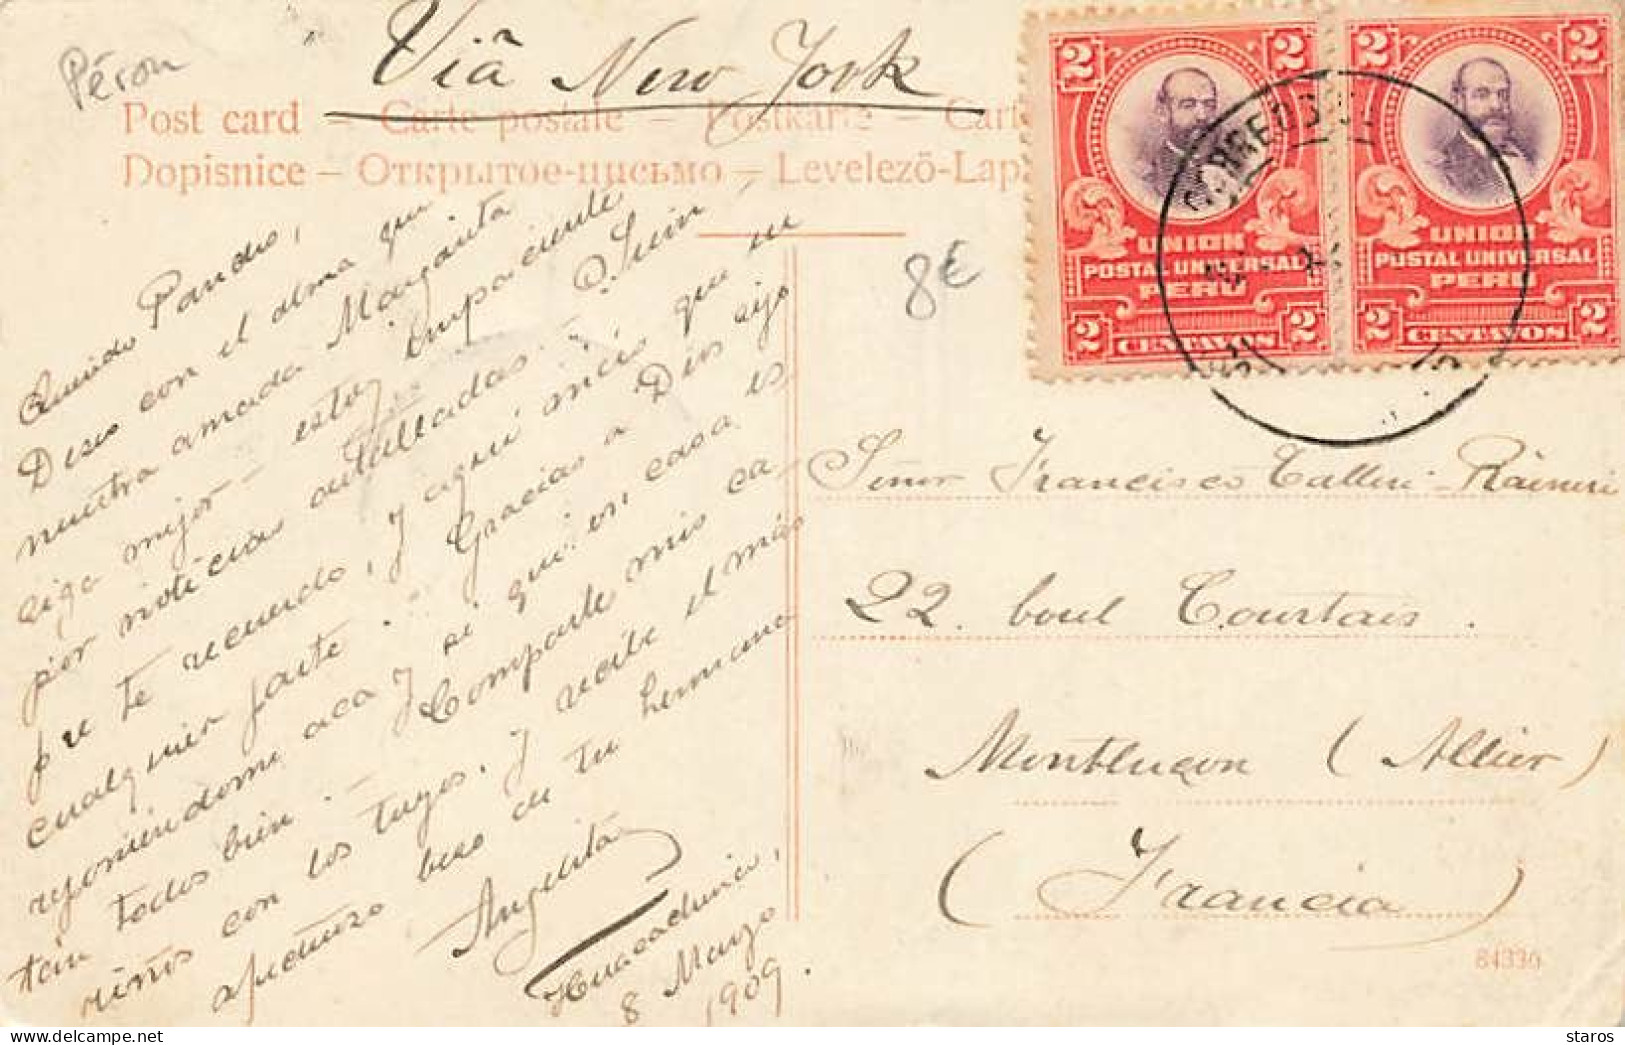 Péron
Viâ New York
Post card – Carte postale – Postkarte – Cart
Dopisnice – Открытое-письмо – Levelezö-Lap
2 2
UNION
POSTAL UNIVERSAL
PERU
2 CENTAVOS 2
2 2
UNION
POSTAL UNIVERSAL
PERU
2 CENTAVOS 2
CORREOS
8€
Querido Pancho,
Deseo con el alma que
nuestra amada Margarita
siga mejor – estoy impaciente
por noticias detalladas. Quien
pre te recuerdo, y aquí más que en
cualquier parte. Gracias a Dios sigo
reponiéndome acá y si quien casa es
tán todos bien. – Comparte mis ca-
riños con los tuyos. y recibe el más
apretado beso de tu hermana
Angelita
Huacachina,
8 Marzo
1909.
Señor Francisco Talleri-Raineri
22. boul Courtais.
Montluçon (Allier)
(Francia)
84330
staros